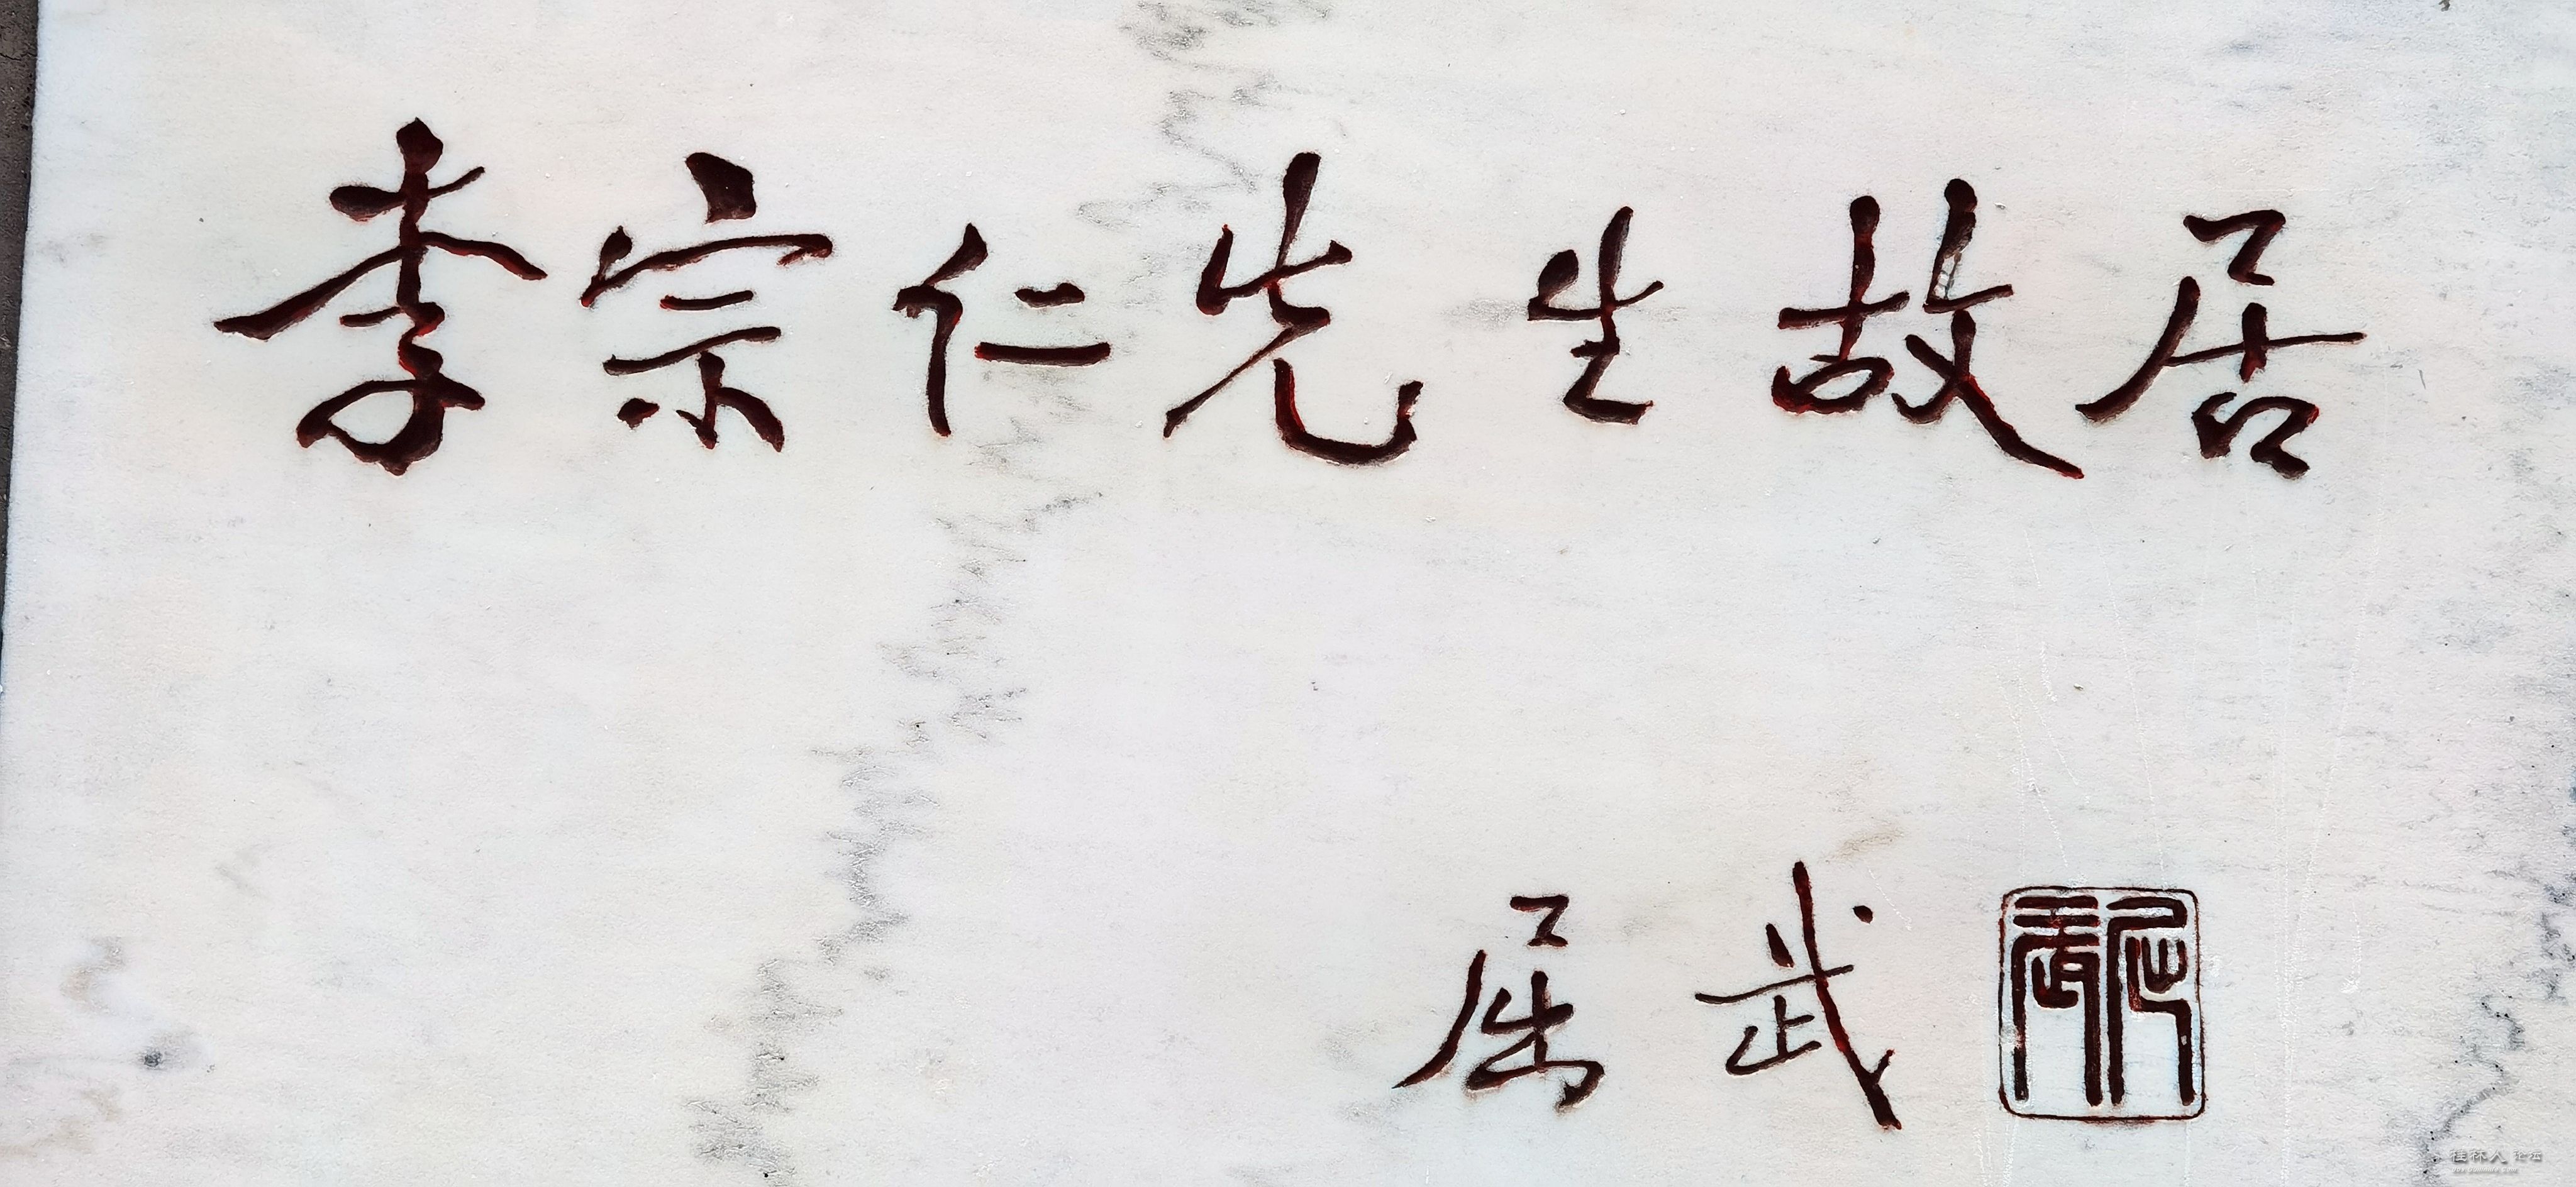 李宗仁先生故居
屈武
屈武
桂林人论坛